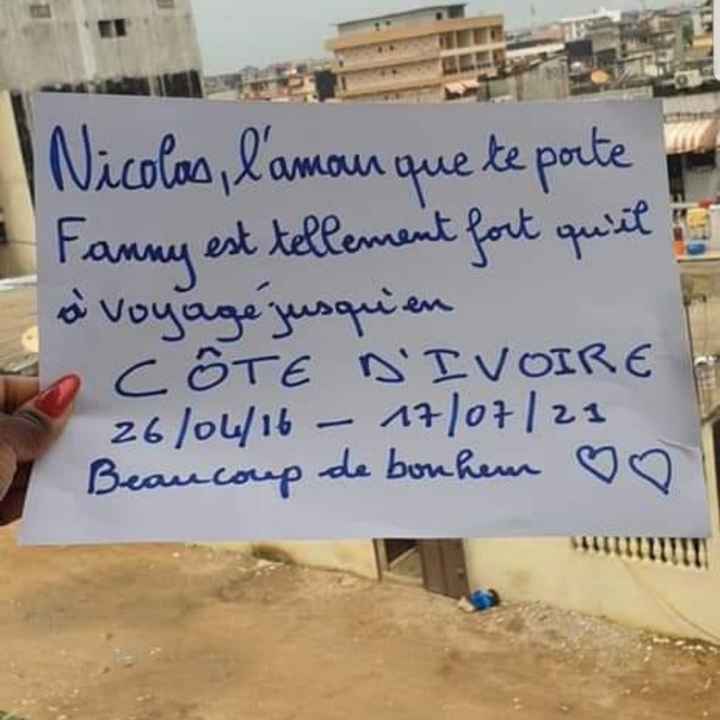 Nicolas, l'amour que te porte
Fanny est tellement fort qu'il
à voyagé jusqu'en
CÔTE D'IVOIRE
26/04/16 – 17/07/21
Beaucoup de bonheur ♡♡